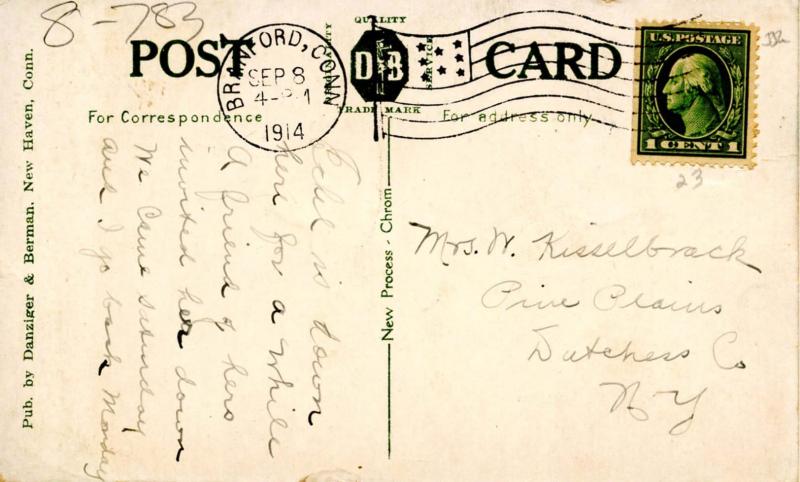 8-783
POST CARD
QUALITY
D & B
SERVICE
TRADE MARK
BRANFORD, CONN.
SEP 8
4-PM
1914
U.S. POSTAGE
1 CENT 1
23
For Correspondence
For address only
Ethel is down
here for a while
A friend of hers
invited her down
We came Saturday
and I go back Monday
New Process - Chrom
Mrs. W. Kisselbrack
Pine Plains
Dutchess Co
NY
Pub. by Danziger & Berman. New Haven, Conn.